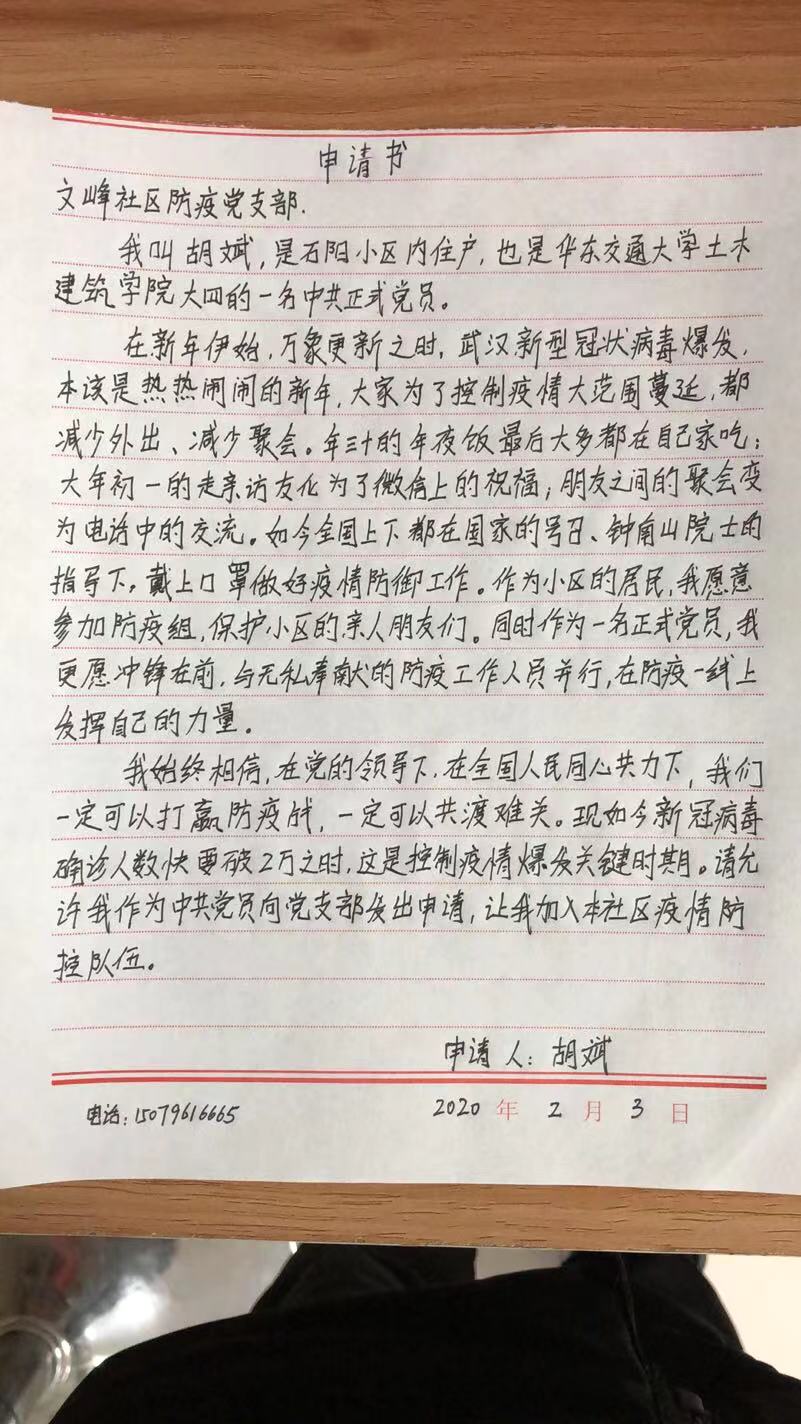 申请书
文峰社区防疫党支部.
我叫胡斌,是石阳小区内住户,也是华东交通大学土木
建筑学院大四的一名中共正式党员。
在新年伊始,万象更新之时,武汉新型冠状病毒爆发,
本该是热热闹闹的新年,大家为了控制疫情大范围蔓延,都
减少外出、减少聚会。年三十的年夜饭最后大多都在自己家吃;
大年初一的走亲访友化为了微信上的祝福;朋友之间的聚会变
为电话中的交流。如今全国上下都在国家的号召、钟南山院士的
指导下,戴上口罩做好疫情防御工作。作为小区的居民,我愿意
参加防疫组,保护小区的亲人朋友们。同时作为一名正式党员,我
更愿冲锋在前,与无私奉献的防疫工作人员并行,在防疫一线上
发挥自己的力量。
我始终相信,在党的领导下,在全国人民同心共力下,我们
一定可以打赢防疫战,一定可以共渡难关。现如今新冠病毒
确诊人数快要破2万之时,这是控制疫情爆发关键时期。请允
许我作为中共党员向党支部发出申请,让我加入本社区疫情防
控队伍。
申请人:胡斌
电话:15079616665
2020年2月3日